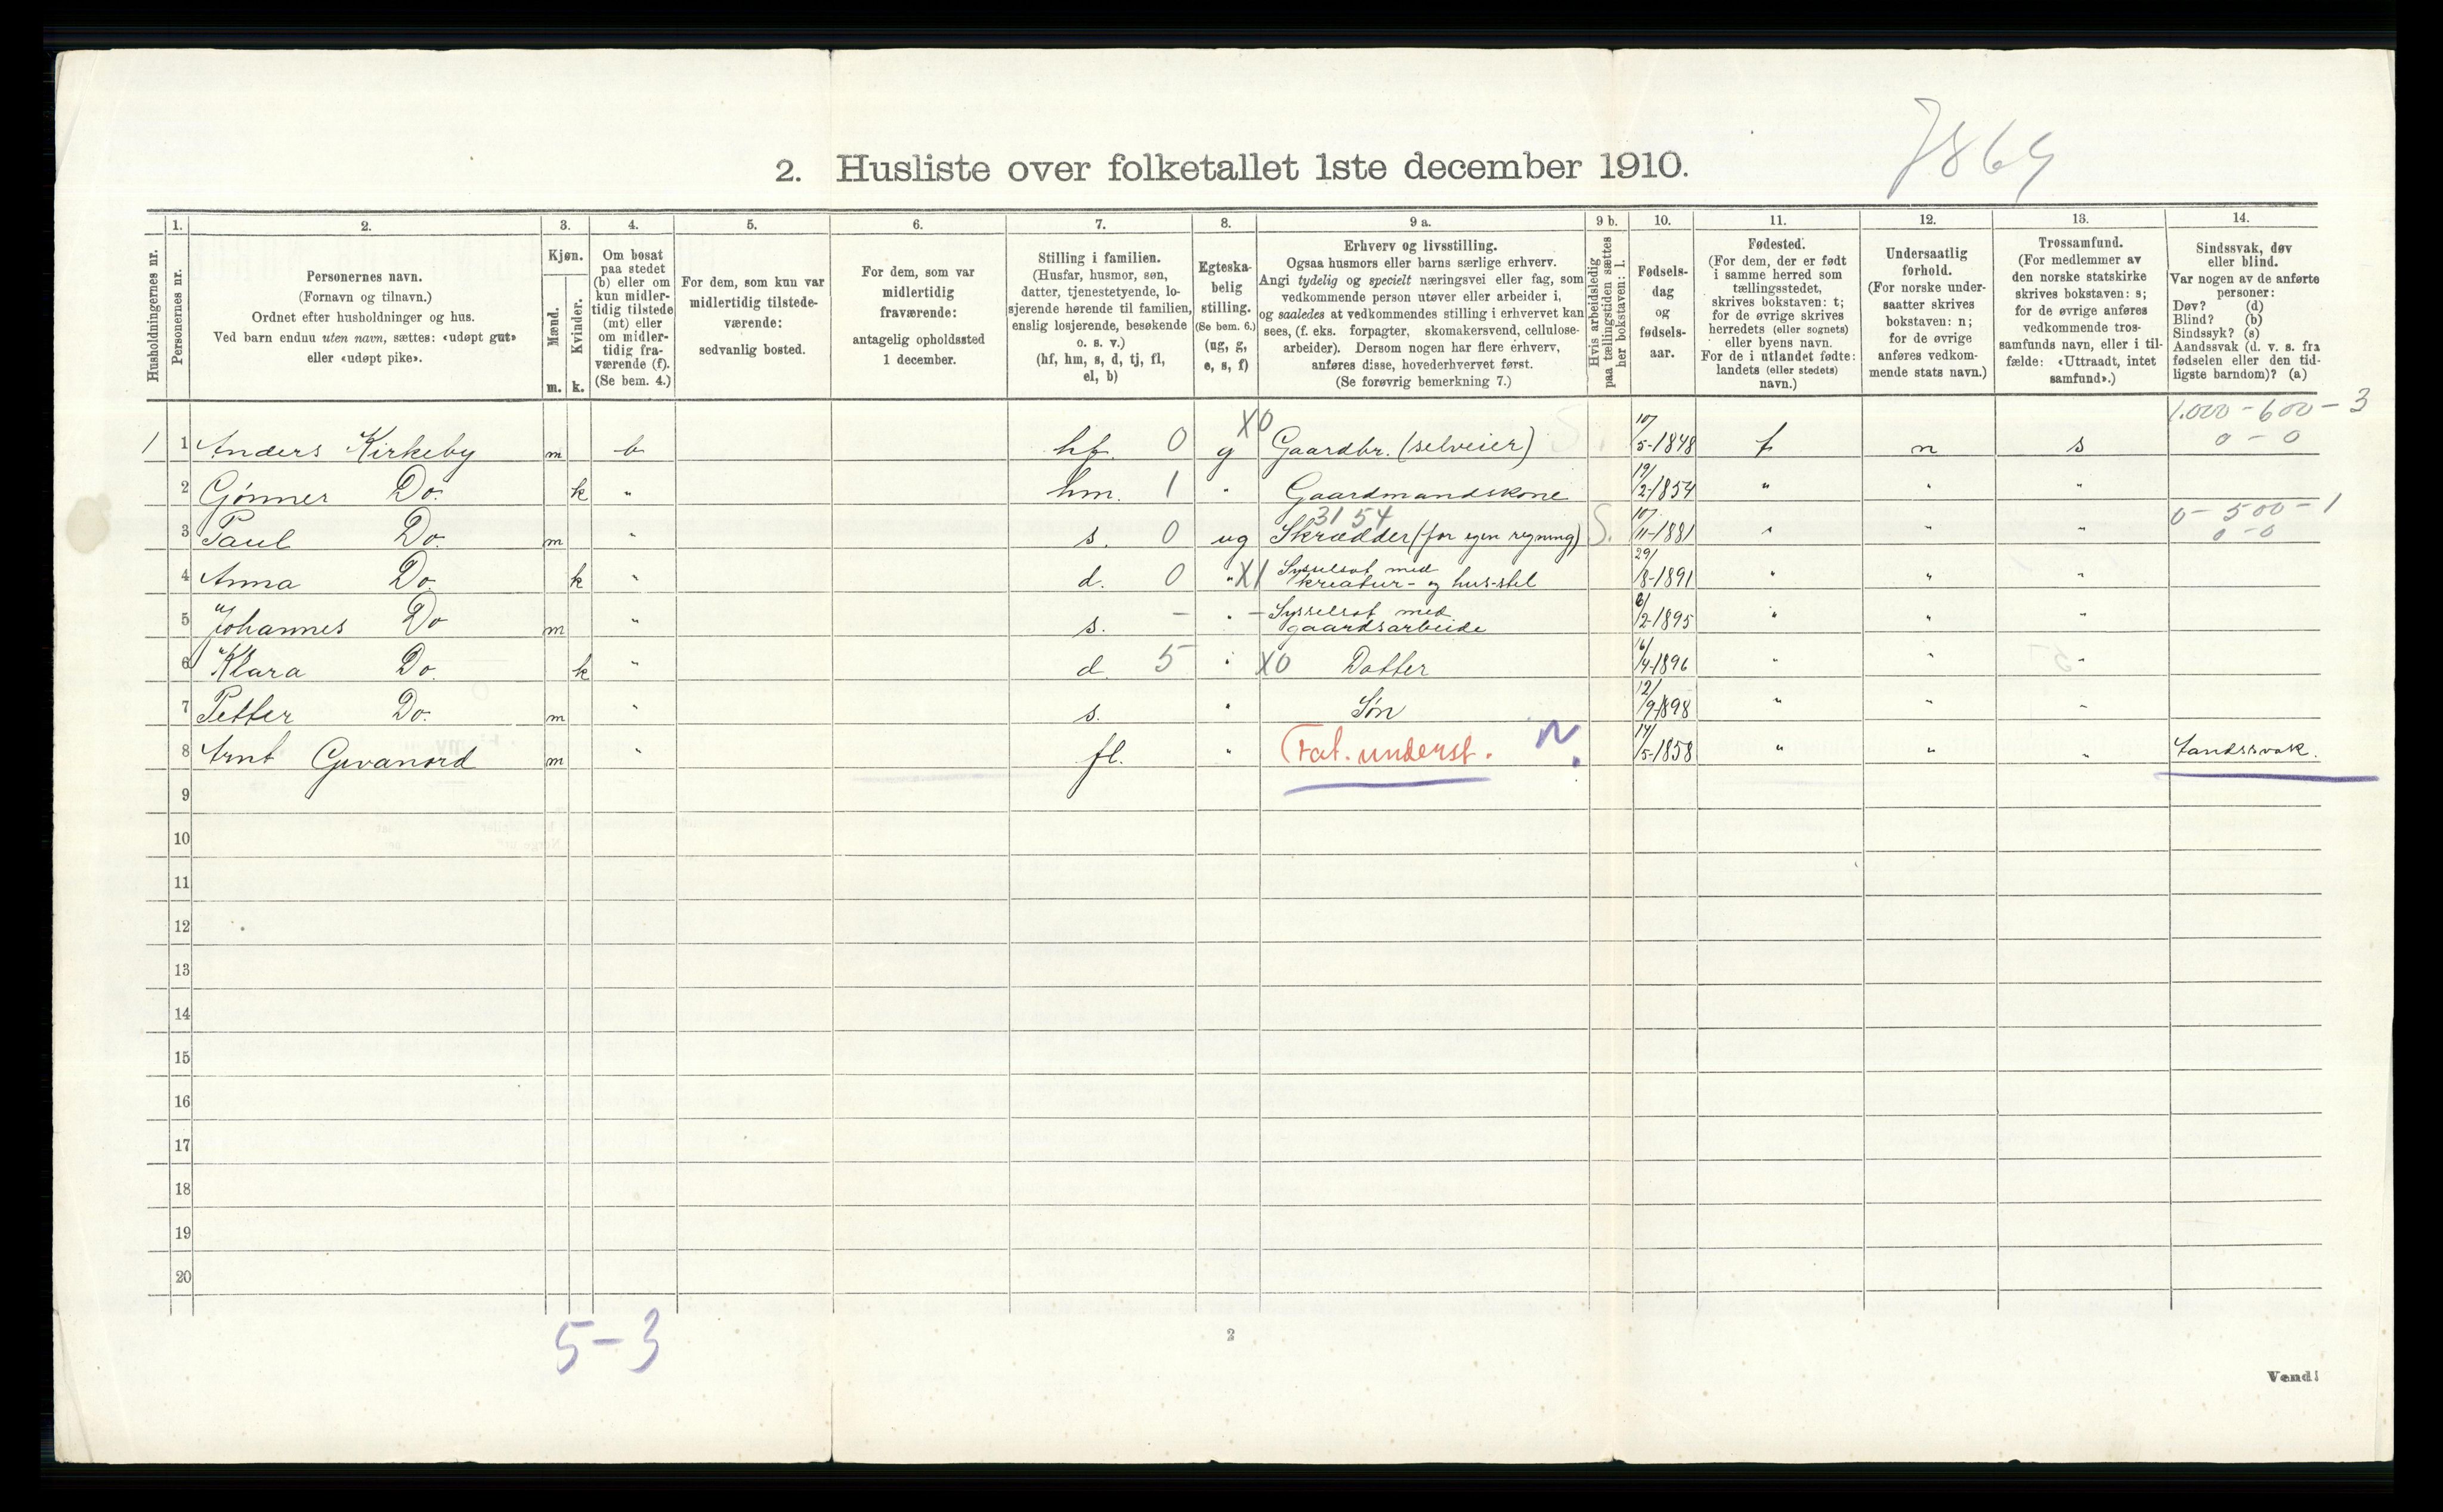 7869
2. Husliste over folketallet 1ste december 1910.
Husholdningernes nr.
1.
Personernes nr.
2.
Personernes navn.
(Fornavn og tilnavn.)
Ordnet efter husholdninger og hus.
Ved barn endnu uten navn, sættes: «udøpt gut»
eller «udøpt pike».
3.
Kjøn.
Mænd.
m.
Kvinder.
k.
4.
Om bosat
paa stedet
(b) eller om
kun midler-
tidig tilstede
(mt) eller
om midler-
tidig fra-
værende (f).
(Se bem. 4.)
5.
For dem, som kun var
midlertidig tilstede-
værende:
sedvanlig bosted.
6.
For dem, som var
midlertidig
fraværende:
antagelig opholdssted
1 december.
7.
Stilling i familien.
(Husfar, husmor, søn,
datter, tjenestetyende, lo-
sjerende hørende til familien,
enslig losjerende, besøkende
o. s. v.)
(hf, hm, s, d, tj, fl,
el, b)
8.
Egteska-
belig
stilling.
(Se bem. 6.)
(ug, g,
e, s, f)
9 a.
Erhverv og livsstilling.
Ogsaa husmors eller barns særlige erhverv.
Angi tydelig og specielt næringsvei eller fag, som
vedkommende person utøver eller arbeider i,
og saaledes at vedkommendes stilling i erhvervet kan
sees, (f. eks. forpagter, skomakersvend, cellulose-
arbeider). Dersom nogen har flere erhverv,
anføres disse, hovederhvervet først.
(Se forøvrig bemerkning 7.)
9 b.
Hvis arbeidsledig
paa tællingstiden sættes
her bokstaven: l.
10.
Fødsels-
dag
og
fødsels-
aar.
11.
Fødested.
(For dem, der er født
i samme herred som
tællingsstedet,
skrives bokstaven: t;
for de øvrige skrives
herredets (eller sognets)
eller byens navn.
For de i utlandet fødte:
landets (eller stedets)
navn.)
12.
Undersaatlig
forhold.
(For norske under-
saatter skrives
bokstaven: n;
for de øvrige
anføres vedkom-
mende stats navn.)
13.
Trossamfund.
(For medlemmer av
den norske statskirke
skrives bokstaven: s;
for de øvrige anføres
vedkommende tros-
samfunds navn, eller i til-
fælde: «Uttraadt, intet
samfund».)
14.
Sindssvak, døv
eller blind.
Var nogen av de anførte
personer:
Døv? (d)
Blind? (b)
Sindssyk? (s)
Aandssvak (d. v. s. fra
fødselen eller den tid-
ligste barndom)? (a)
1.000 - 600 - 3
1 1 Anders Kirkeby m b hf. 0 g X0 Gaardbr. (selveier) S. 10/5-1848 t n s 0 - 0
2 Gønner Do. k " hm. 1 " Gaardmandskone 19/2-1854 " " "
3154 0 - 500 - 1
3 Paul Do. m " s. 0 ug Skrædder (for egen regning) S. 10/11-1881 " " " 0 - 0
4 Anna Do. k " d. 0 " X1 Sysselsat med kreatur- og hus-stel 29/8-1891 " " "
5 Johannes Do m " s. - " - Sysselsat med gaardsarbeide 6/2-1895 " " "
6 Klara Do. k " d. 5 " X0 Datter 16/4-1896 " " "
7 Petter Do. m " s. " Søn 12/9-1898 " " "
8 Arnt Gevanord m " fl. " Fat. underst. N. 14/5-1858 " " " Aandssvak.
9
10
11
12
13
14
15
16
17
18
19
20
5-3
2
Vend!